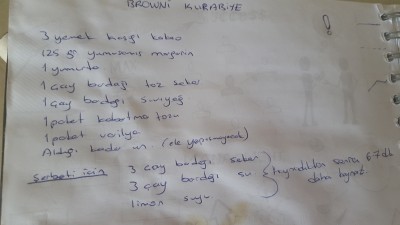 BROWNİ KURABİYE
3 yemek kaşığı kakao
125 gr yumuşamış margarin
1 yumurta
1 çay bardağı toz şeker
1 çay bardağı sıvıyağ
1 paket kabartma tozu
1 paket vanilya
Aldığı kadar un (ele yapışmayacak)
Şerbeti için 3 çay bardağı şeker
3 çay bardağı su
limon suyu
kaynadıktan sonra 6-7 dk
daha kaynat